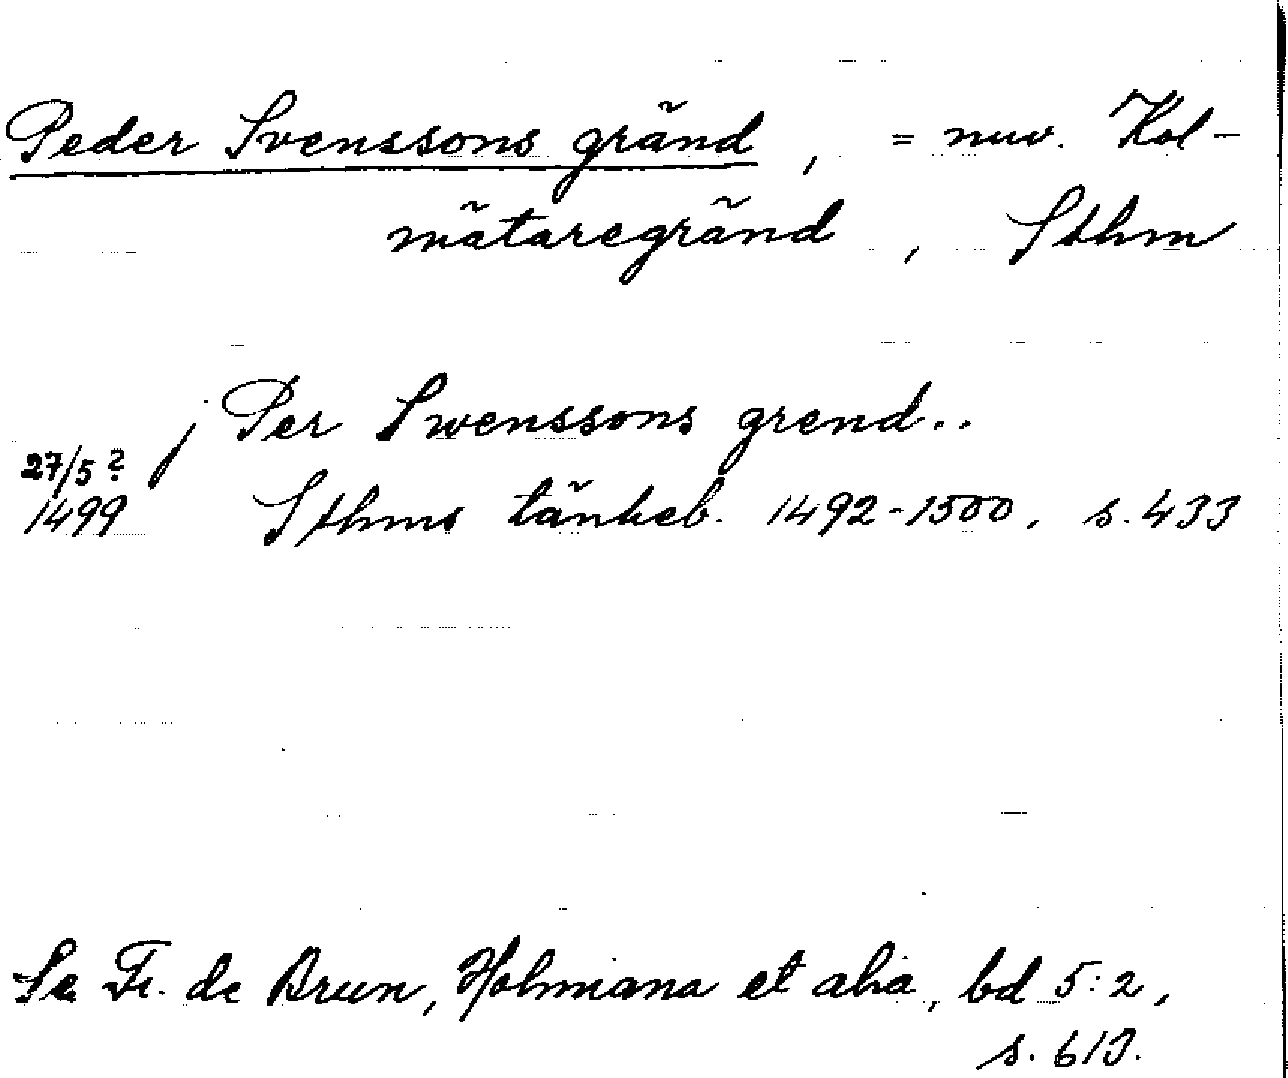 Peder Svenssons gränd, = nuv. Kol-
mätaregränd, Sthm
j Per Swenssons grend..
27/5?
1499 Sthms tänkeb. 1492-1500, s. 433
Se Fr. de Brun, Holmiana et alia, bd 5:2,
s. 613.